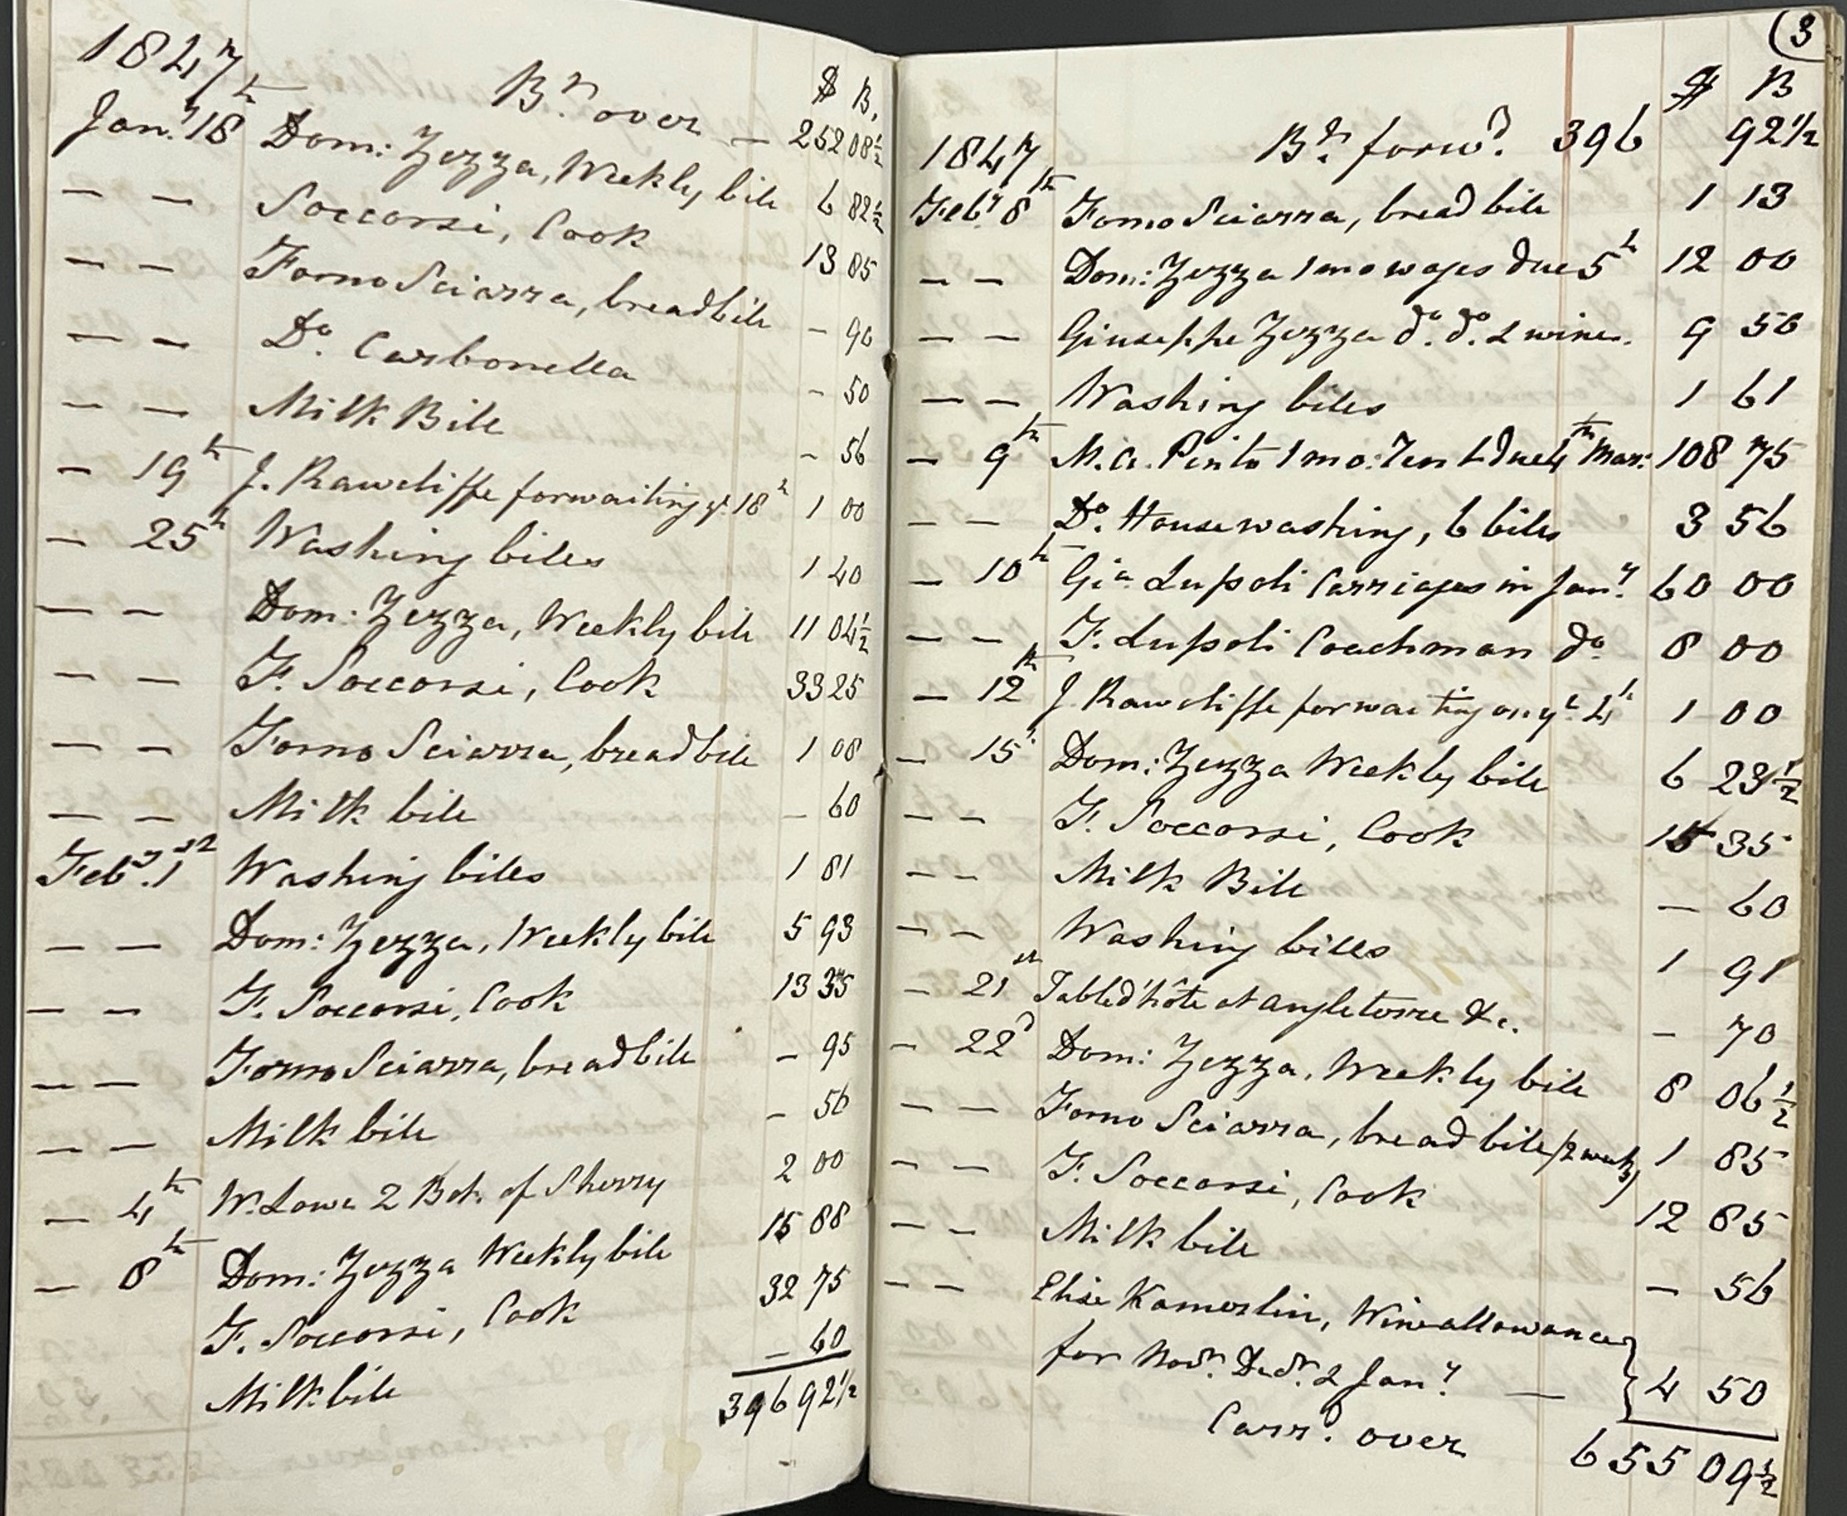 1847
Bt. over — $ B.
252 08½
Jany. 18th Dom: Zezza, Weekly bill 6 82½
— — Soccorsi, Cook 13 85
— — Forno Sciarra, bread bill — 90
— — Do. Carbonella — 50
— — Milk Bill — 56
— 19th J. Rawcliffe for waiting ye. 18th 1 00
— 25th Washing bills 1 40
— — Dom: Zezza, Weekly bill 11 04½
— — F. Soccorsi, Cook 33 25
— — Forno Sciarra, bread bill 1 08
— — Milk bill — 60
Feby. 1st Washing bills 1 81
— — Dom: Zezza, Weekly bill 5 93
— — F. Soccorsi, Cook 13 35
— — Forno Sciarra, bread bill — 95
— — Milk bill — 56
— 4th W. Lowe 2 Bots. of Sherry 2 00
— 8th Dom: Zezza Weekly bill 15 88
F. Soccorsi, Cook 32 75
Milk bill — 60
396 92½
(3
$ B
1847 Bt. forwd. 396 92½
Feby. 8th Forno Sciarra, bread bill 1 13
— — Dom: Zezza 1 mo wages due 5th 12 00
— — Giuseppe Zezza do. do. & wine. 9 50
— — Washing bills 1 61
— 9th M. A. Pinto 1 mo: Rent due 4th Mar: 108 75
— — Do. House washing, 6 bills 3 56
— 10th Gia. Lupoli Carriages in Jany. 60 00
— — F. Lupoli Coachman do. 8 00
— 12th J Rawcliffe for waiting on ye. 4th 1 00
— 15th Dom: Zezza Weekly bill 6 23½
— — F. Soccorsi, Cook 15 35
— — Milk Bill — 60
— — Washing bills 1 91
— 21st Table d'hôte at Angleterre &c. — 70
— 22d Dom: Zezza, Weekly bill 8 06½
— — Forno Sciarra, bread bill (2 weeks) 1 85
— — F. Soccorsi, Cook 12 85
— — Milk bill — 56
— — Elise Kamerlin, Wine allowance
for Novr. Decr. & Jany. — 4 50
Carrd. over 655 09½